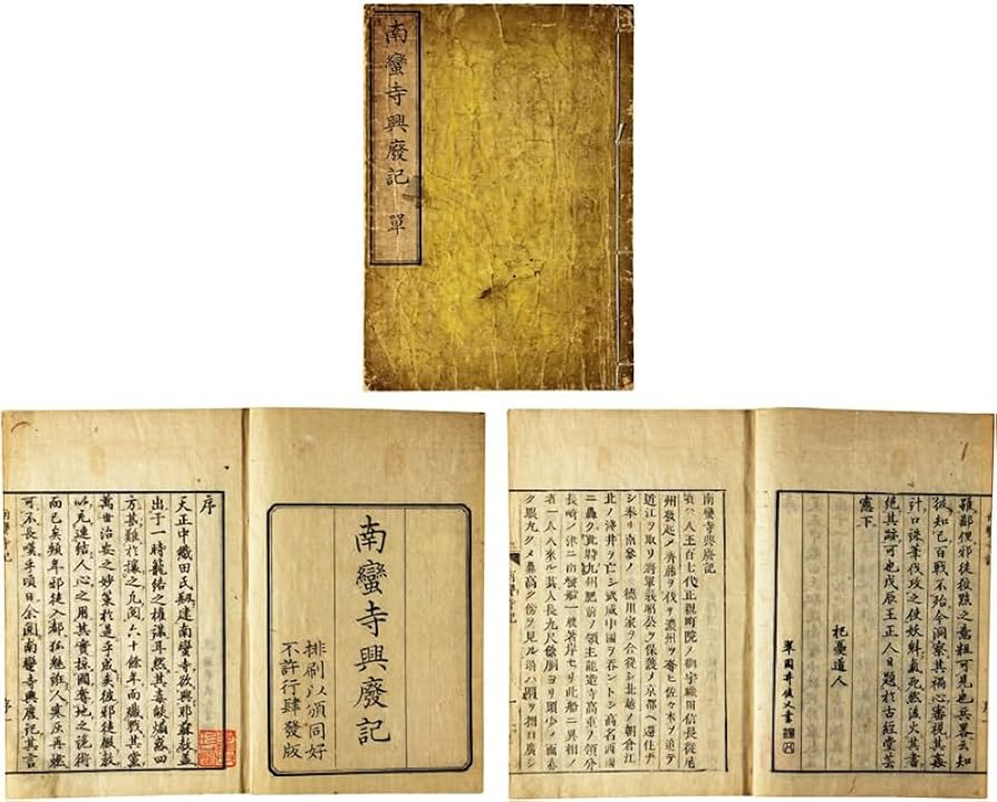 南蠻寺興廢記 單
南蠻寺興廢記
排刷以頒同好
不許行肆發版
序
天正中織田氏剏建南蠻寺欲興耶蘇教蓋
出于一時籠絡之權謀耳然其毒燄煽惑四
方甚難於攘之凡閲六十餘年而殲戮其黨
萬世治安之妙策於是乎成矣彼邪徒服教
以充連結人心之用其實掠國奪地之詭術
而已矣頻年邪徒入都狐魅誑人寒灰再燃
可不長嘆乎頃日余閲南蠻寺興廢記其言
雖鄙俚邪徒狡黠之意粗可見也兵畧云知
彼知己百戰不殆今洞察其禍心審視其姦
計口誅筆伐攻之使妖氣死然後火其書
絶其跡可也戊辰王正人日題於古經堂芸
窻下
杞憂道人
翠園井俊乂書
南蠻寺興廢記
人王百七代正親町院ノ御宇織田信長從尾
州發起シ齋藤ヲ伐テ濃州ヲ奪ヒ佐々木ヲ追テ
近江ヲ取リ將軍義昭公ヲ保護メ京都ヘ還住チ
シ奉リ南參ノ德川家ヲ合從シ北越ノ朝倉江
北ノ淺井ヲ亡シ武威中國ヲ吞ントシ高名西國
ニ轟ク此時九州肥前ノ領主龍造寺高重ノ領分
長崎ノ津ニ南蠻船一艘著岸セリ此船ニ異相ノ
者一人乘來ル其人長九尺餘胴ヨリ頭少ク面赤
ク眼丸クメ鼻高ク傍ヲ見ル時ハ肩ヲ口廣シ